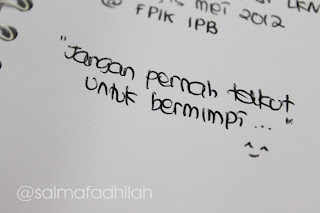 MEI 2012
@ FPIK IPB
"Jangan pernah takut
untuk bermimpi ..."
^_^
@salmafadhilah